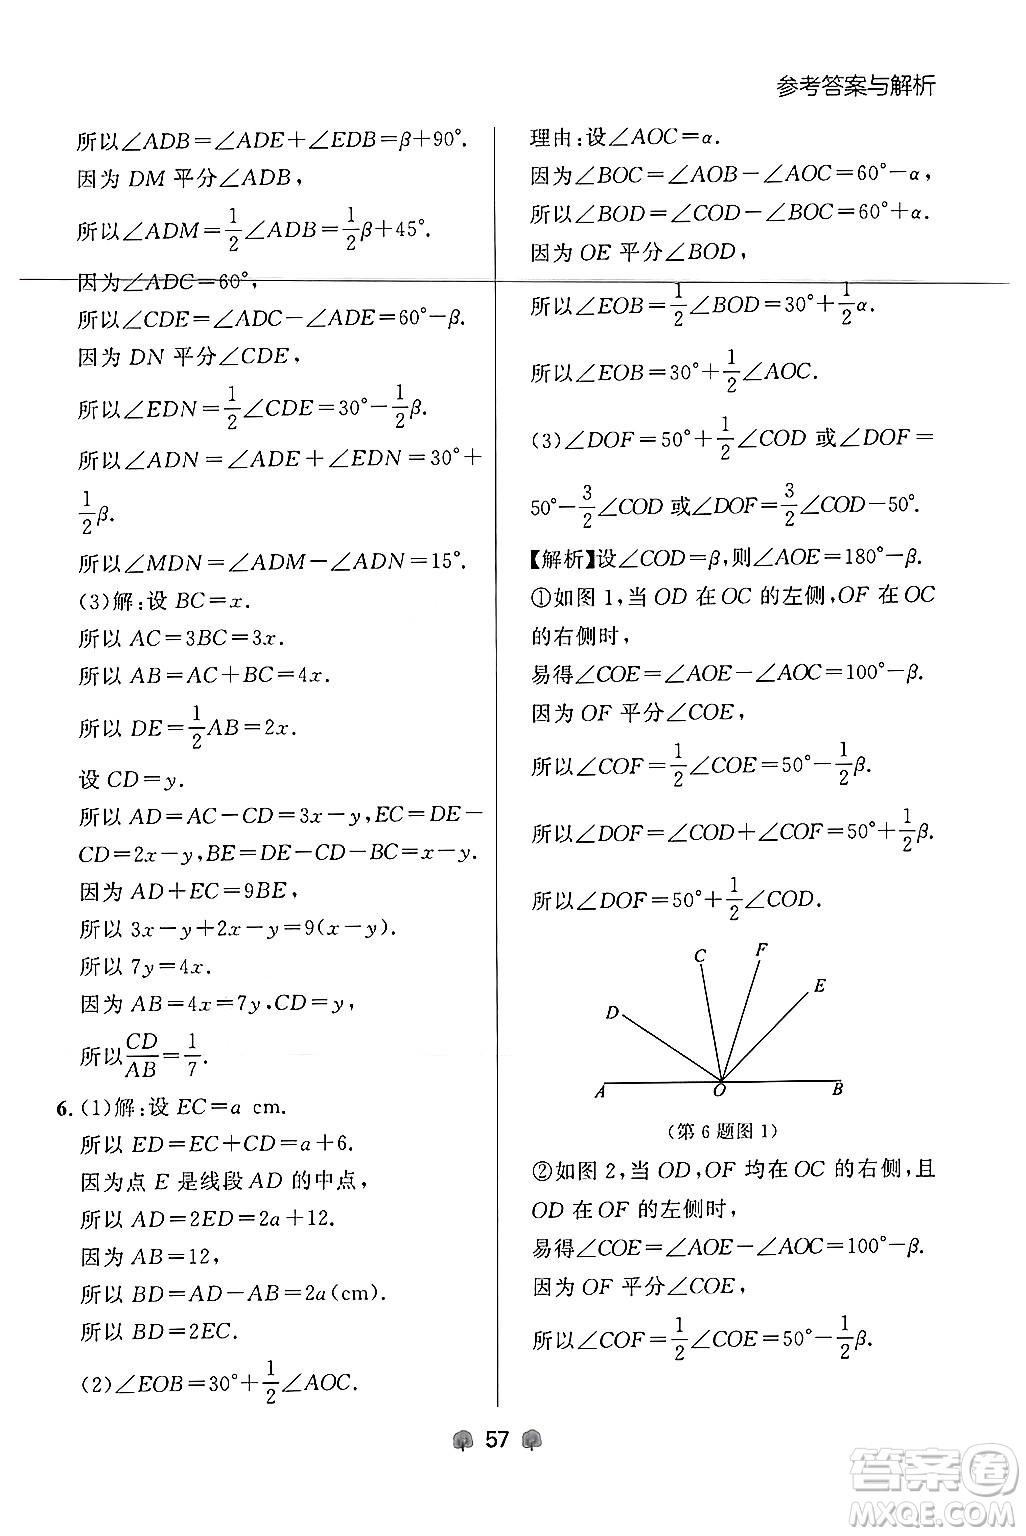 参考答案与解析
所以∠ADB=∠ADE+∠EDB=β+90°.
因为 DM 平分∠ADB,
所以∠ADM=1/2∠ADB=1/2β+45°.
因为∠ADC=60°,
所以∠CDE=∠ADC-∠ADE=60°-β.
因为 DN 平分∠CDE,
所以∠EDN=1/2∠CDE=30°-1/2β.
所以∠ADN=∠ADE+∠EDN=30°+
1/2β.
所以∠MDN=∠ADM-∠ADN=15°.
(3)解:设 BC=x.
所以 AC=3BC=3x.
所以 AB=AC+BC=4x.
所以 DE=1/2AB=2x.
设 CD=y.
所以 AD=AC-CD=3x-y,EC=DE-
CD=2x-y,BE=DE-CD-BC=x-y.
因为 AD+EC=9BE,
所以 3x-y+2x-y=9(x-y).
所以 7y=4x.
因为 AB=4x=7y,CD=y,
所以CD/AB=1/7.
6.(1)解:设 EC=a cm.
所以 ED=EC+CD=a+6.
因为点 E 是线段 AD 的中点,
所以 AD=2ED=2a+12.
因为 AB=12,
所以 BD=AD-AB=2a(cm).
所以 BD=2EC.
(2)∠EOB=30°+1/2∠AOC.
理由:设∠AOC=α.
因为∠BOC=∠AOB-∠AOC=60°-α,
所以∠BOD=∠COD-∠BOC=60°+α.
因为 OE 平分∠BOD,
所以∠EOB=1/2∠BOD=30°+1/2α.
所以∠EOB=30°+1/2∠AOC.
(3)∠DOF=50°+1/2∠COD 或∠DOF=
50°-3/2∠COD 或∠DOF=3/2∠COD-50°.
【解析】设∠COD=β,则∠AOE=180°-β.
①如图 1,当 OD 在 OC 的左侧,OF 在 OC
的右侧时,
易得∠COE=∠AOE-∠AOC=100°-β.
因为 OF 平分∠COE,
所以∠COF=1/2∠COE=50°-1/2β.
所以∠DOF=∠COD+∠COF=50°+1/2β.
所以∠DOF=50°+1/2∠COD.
C F
E
D
A O B
(第 6 题图 1)
②如图 2,当 OD,OF 均在 OC 的右侧,且
OD 在 OF 的左侧时,
易得∠COE=∠AOE-∠AOC=100°-β.
因为 OF 平分∠COE,
所以∠COF=1/2∠COE=50°-1/2β.
57
答案圈
MXQE.COM